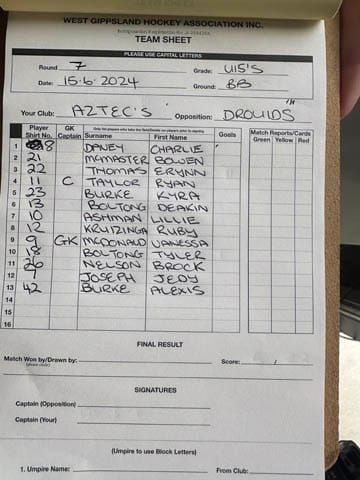 WEST GIPPSLAND HOCKEY ASSOCIATION INC.
TEAM SHEET
PLEASE USE CAPITAL LETTERS
Round 7 Grade: U15'S
Date: 15.6.2024 Ground: BB
Your Club: AZTEC'S Opposition: DROUIDS
Player Shirt No. GK Captain Surname First Name Goals Match Reports/Cards Green Yellow Red
1 8 DANEY CHARLIE
2 21 McMASTER BOWEN
3 22 THOMAS ERYNN
4 11 C TAYLOR RYAN
5 23 BURKE KYRA
6 13 BOLTONG DEAKIN
7 10 ASHMAN LILLIE
8 12 KRUIZINGA RUBY
9 9 GK McDONALD VANESSA
10 18 BOLTONG TYLER
11 26 NELSON BROCK
12 7 JOSEPH JEDY
13 42 BURKE ALEXIS
14
15
16
FINAL RESULT
Match Won by/Drawn by: Score: /
(please circle)
SIGNATURES
Captain (Opposition)
Captain (Your)
(Umpire to use Block Letters)
1. Umpire Name: From Club: